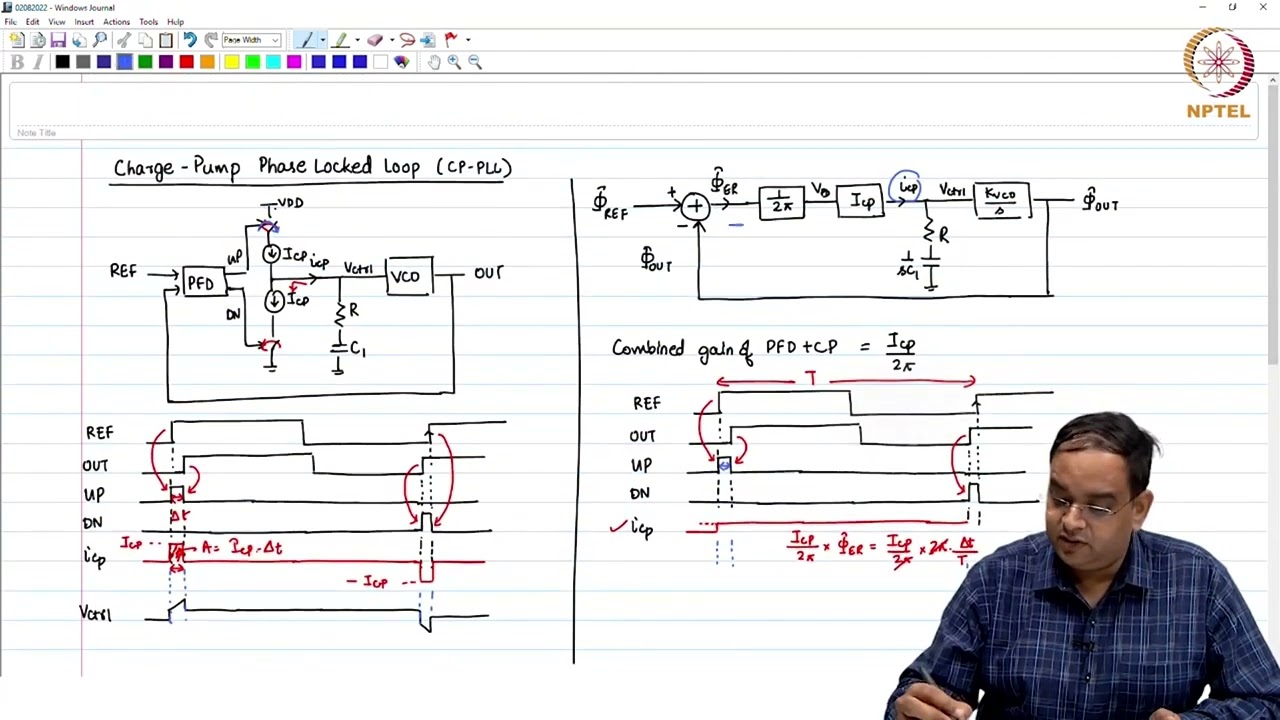 02082022 - Windows Journal
File Edit View Insert Actions Tools Help
Page Width
B I
NPTEL
Note Title
Charge-Pump Phase Locked Loop (CP-PLL)
VDD
UP
Icp
icp
Vctrl
REF
PFD
VCO
OUT
Icp
DN
R
C1
REF
OUT
UP
Δt
DN
Icp
A = Icp·Δt
icp
- Icp
Vctrl
Φ̂REF
+
Φ̂ER
1/2π
Icp
icp
Vctrl
KVCO/s
Φ̂OUT
+
−
R
Φ̂OUT
1/sC1
Combined gain of PFD+CP = Icp/2π
T
REF
OUT
UP
DN
✓ icp
Icp/2π × Φ̂ER = Icp/2π × 2π · Δt/T